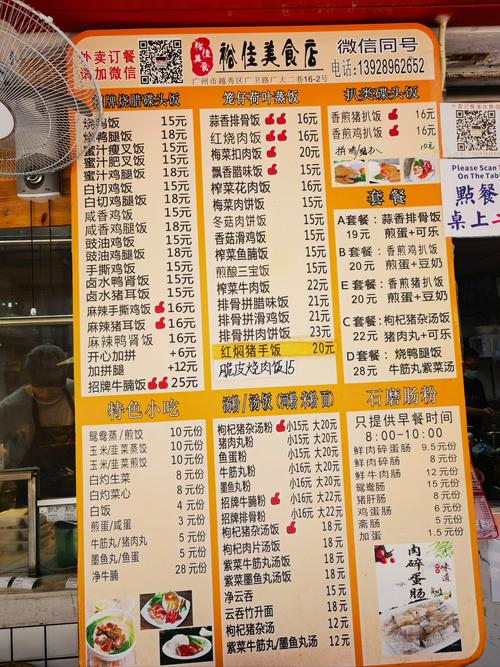 外卖订餐
请加微信
裕佳美食
裕佳美食店
广州市越秀区广卫路广大二巷16-2号
微信同号
电话:13928962652
招牌烧腊碟头饭
烧鸭饭 15元
烧鸭腿饭 18元
蜜汁瘦叉饭 15元
蜜汁肥叉饭 15元
蜜汁鸡腿饭 18元
白切鸡饭 15元
白切鸡腿饭 18元
咸香鸡饭 15元
咸香鸡腿饭 18元
豉油鸡饭 15元
豉油鸡腿饭 18元
手撕鸡饭 15元
卤水鸭肾饭 15元
卤水猪耳饭 15元
麻辣手撕鸡饭 16元
麻辣猪耳饭 16元
麻辣鸭肾饭 16元
开心加拼 +6元
加拼腿 +12元
招牌牛腩饭 25元
笼仔荷叶蒸饭
蒜香排骨饭 16元
红烧肉饭 16元
梅菜扣肉饭 20元
飘香腊味饭 16元
榨菜花肉饭 16元
梅菜肉饼饭 15元
冬菇肉饼饭 15元
香菇滑鸡饭 15元
榨菜鱼腩饭 15元
煎酿三宝饭 15元
榨菜牛肉饭 22元
排骨拼腊味饭 21元
排骨拼滑鸡饭 21元
排骨拼肉饼饭 23元
红焖猪手饭 20元
脆皮烧肉饭15
扒类碟头饭
香煎猪扒饭 16元
香煎鸡扒饭 16元
10元
套餐
A套餐：蒜香排骨饭
19元 煎蛋+可乐
B套餐：香煎鸡扒饭
20元 煎蛋+豆奶
E套餐：香煎猪扒饭
20元 煎蛋+豆奶
C套餐：枸杞猪杂汤饭
22元 猪肉丸+可乐
D套餐：烧鸭腿饭
28元 牛筋丸紫菜汤
特色小吃
鸳鸯蒸/煎饺 10元份
玉米/韭菜蒸饺 10元份
玉米/韭菜煎饺 10元份
白灼生菜 8元份
白灼菜心 8元份
白饭 4元份
煎蛋/咸蛋 3元份
牛筋丸/猪肉丸 5元份
墨鱼丸/鱼蛋 5元份
净牛腩 28元份
汤粉/汤饭(河粉 米粉 面)
枸杞猪杂汤粉 小15元 大20元
猪肉丸粉 小15元 大20元
鱼蛋粉 小15元 大20元
牛筋丸粉 小15元 大20元
墨鱼丸粉 小15元 大20元
招牌牛腩粉 小16元 大22元
招牌排骨粉 小16元 大22元
枸杞猪杂汤饭 18元
枸杞肉片汤饭 18元
紫菜牛筋丸汤饭 18元
紫菜墨鱼丸汤饭 18元
净云吞 15元
云吞竹升面 18元
枸杞猪杂汤 12元
牛筋丸/墨鱼丸汤 12元
石磨肠粉
只提供早餐时间
8:00-10:00
鲜肉碎蛋肠 9.5元份
鲜肉碎肠 8元份
鲜牛肉肠 12元份
鸳鸯肠 15元份
猪肝肠 8元份
鸡蛋肠 6元份
斋肠 5元份
加蛋 1.5元份
肉碎蛋肠
味道
Please Scan
On The Tab
點餐
桌上二